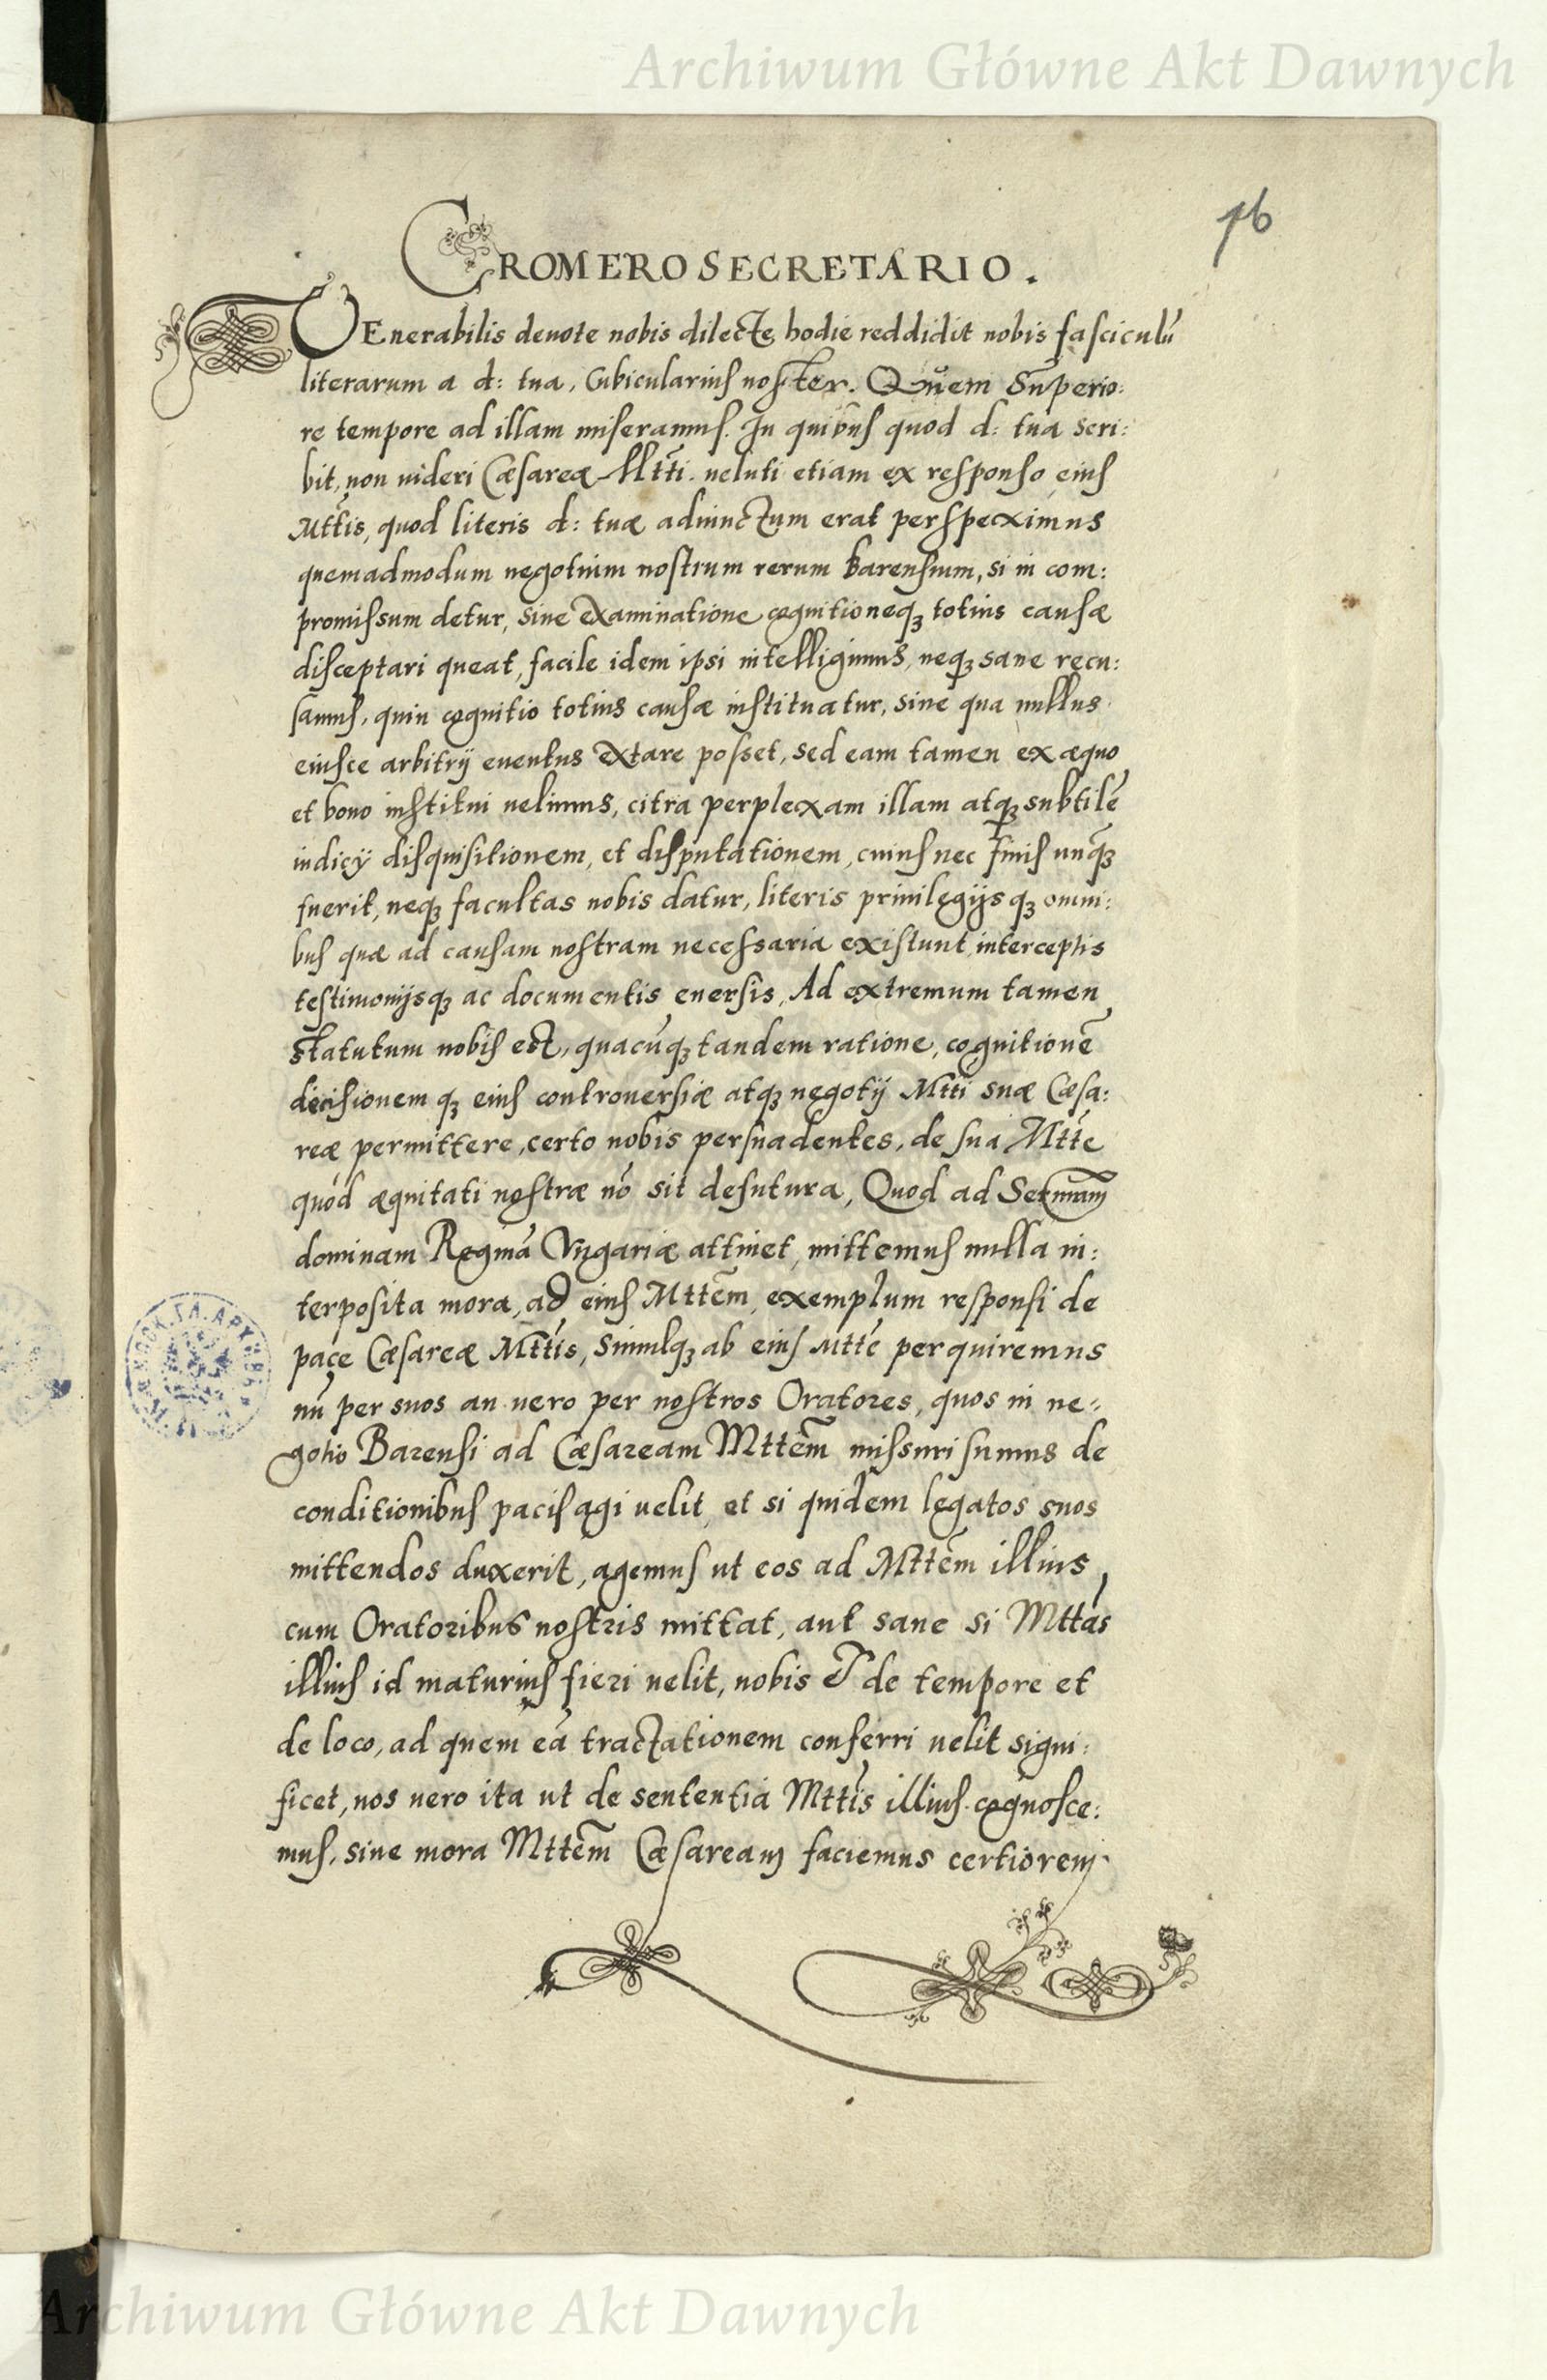 Archiwum Główne Akt Dawnych
76
CROMERO SECRETARIO.
VEnerabilis deuote nobis dilecte, hodie reddidit nobis fasciculũ
literarum a d: tua, Cubicularius noster. Quem Superio:
re tempore ad illam miseramus. In quibus quod d: tua scri:
bit, non uideri Cæsareæ Mtti. ueluti etiam ex responso eius
Mttis, quod literis d: tuæ adiunctum erat perspeximus
quemadmodum negotium nostrum rerum barensium, si in com:
promissum detur, sine examinatione cognitioneq; totius causæ
disceptari queat, facile idem ipsi intelligimus, neq; sane recu:
samus, quin cognitio totius causæ instituatur, sine qua nullus
eiusce arbitrij euentus extare posset, sed eam tamen ex æquo
et bono institui uelimus, citra perplexam illam atq; subtilẽ
iudicij disquisitionem, et disputationem, cuius nec finis unq̃
fuerit, neq; facultas nobis datur, literis priuilegijsq; omni:
bus quæ ad causam nostram necessaria existunt, interceptis
testimonijsq; ac documentis euersis, Ad extremum tamen
statutum nobis est, quacũq; tandem ratione, cognitionẽ
decisionem q; eius controuersiæ atq; negotij Mtti suæ Cæsa:
reæ permittere, certo nobis persuadentes, de sua Mtte
quod æquitati nostræ nõ sit desutura, Quod ad Sermam
dominam Reginã Vngariæ attinet, mittemus nulla in:
terposita mora, ad eius Mttem, exemplum responsi de
pace Cæsareæ Mttis, Simulq; ab eius Mtte perquiremus
nũ per suos an uero per nostros Oratores, quos in ne=
gotio Barensi ad Cæsaream Mttem missuri sumus de
conditionibus pacis agi uelit, et si quidem legatos suos
mittendos duxerit, agemus ut eos ad Mttem illius,
cum Oratoribus nostris mittat, aut sane si Mttas
illius id maturius fieri uelit, nobis et de tempore et
de loco, ad quem eã tractationem conferri uelit signi:
ficet, nos uero ita ut de sententia Mttis illius cognosce:
mus, sine mora Mttem Cæsaream faciemus certiorem.
Archiwum Główne Akt Dawnych